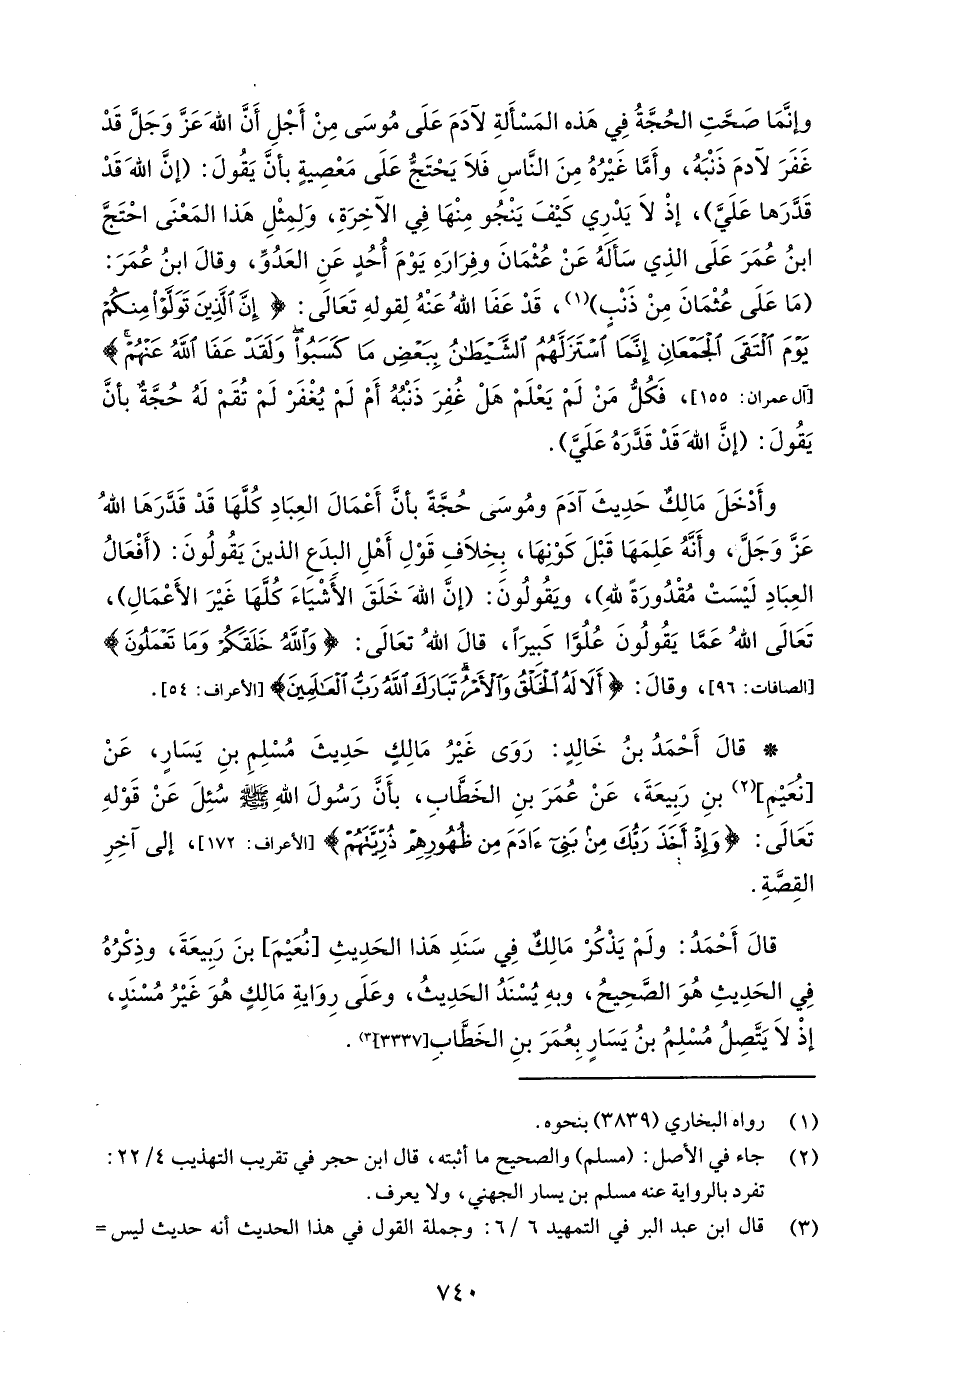 وإنَّمَا صَحَّتِ الحُجَّةُ فِي هَذه المَسْأَلةِ لآدَمَ عَلَى مُوسَى مِنْ أَجْلِ أَنَّ اللهَ عَزَّ وَجَلَّ قَدْ
غَفَرَ لآدمَ ذَنْبَهُ، وأَمَّا غَيْرُهُ مِنَ النَّاسِ فَلاَ يَحْتَجُّ عَلَى مَعْصِيةٍ بأنَّ يَقُولَ: (إنَّ اللهَ قَدْ
قَدَّرَها عَلَيَّ)، إذْ لاَ يَدْرِي كَيْفَ يَنْجُو مِنْهَا فِي الآخِرَةِ، وَلِمِثْلِ هَذا المَعْنَى احْتَجَّ
ابنُ عُمَرَ عَلَى الذِي سَأَلَهُ عَنْ عُثْمَانَ وفِرَارِه يَوْمَ أُحُدٍ عَنِ العَدُوِّ، وقالَ ابنُ عُمَرَ:
(مَا عَلَى عُثْمَانَ مِنْ ذَنْبٍ)(١)، قَدْ عَفَا اللهُ عَنْهُ لِقَولهِ تَعَالَى: ﴿ إِنَّ ٱلَّذِينَ تَوَلَّوْا۟ مِنكُمْ
يَوْمَ ٱلْتَقَى ٱلْجَمْعَانِ إِنَّمَا ٱسْتَزَلَّهُمُ ٱلشَّيْطَٰنُ بِبَعْضِ مَا كَسَبُوا۟ۖ وَلَقَدْ عَفَا ٱللَّهُ عَنْهُمْۗ ﴾
[آل عمران: ١٥٥]، فَكُلُّ مَنْ لَمْ يَعْلَمْ هَلْ غُفِرَ ذَنْبُهُ أمْ لَمْ يُغْفَرْ لَمْ تَقُمْ لَهُ حُجَّةٌ بأنَّ
يَقُولَ: (إنَّ اللهَ قَدْ قَدَّرَهُ عَلَيَّ).
وأَدْخَلَ مَالِكٌ حَدِيثَ آدَمَ ومُوسَى حُجَّةً بأنَّ أَعْمَالَ العِبَادِ كُلَّهَا قَدْ قَدَّرَهَا اللهُ
عَزَّ وَجَلَّ، وأَنَّهُ عَلِمَهَا قَبْلَ كَوْنِهَا، بِخِلاَفِ قَوْلِ أَهْلِ البدَعِ الذينَ يَقُولُونَ: (أَفْعَالُ
العِبَادِ لَيْسَتْ مُقْدُورَةً للهِ)، ويَقُولُونَ: (إنَّ اللهَ خَلَقَ الأَشْيَاءَ كُلَّهَا غَيْرَ الأَعْمَالِ)،
تَعَالَى اللهُ عَمَّا يَقُولُونَ عُلُوَّا كَبِيرَاً، قالَ اللهُ تعَالَى: ﴿ وَٱللَّهُ خَلَقَكُمْ وَمَا تَعْمَلُونَ ﴾
[الصافات: ٩٦]، وقالَ: ﴿ أَلَا لَهُ ٱلْخَلْقُ وَٱلْأَمْرُۗ تَبَارَكَ ٱللَّهُ رَبُّ ٱلْعَٰلَمِينَ ﴾ [الأعراف: ٥٤].
* قالَ أَحْمَدُ بنُ خَالِدٍ: رَوَى غَيْرُ مَالِكٍ حَدِيثَ مُسْلِمِ بنِ يَسَارٍ، عَنْ
[نُعَيْمِ](٢) بنِ رَبِيعَةَ، عَنْ عُمَرَ بنِ الخَطَّابِ، بأنَّ رَسُولَ اللهِ ﷺ سُئِلَ عَنْ قَوْلهِ
تَعَالَى: ﴿ وَإِذْ أَخَذَ رَبُّكَ مِنۢ بَنِىٓ ءَادَمَ مِن ظُهُورِهِمْ ذُرِّيَّتَهُمْ ﴾ [الأعراف: ١٧٢]، إلى آخِرِ
القِصَّةِ.
قالَ أَحْمَدُ: ولَمْ يَذْكُرْ مَالِكٌ فِي سَنَدِ هَذا الحَدِيثِ [نُعَيْمَ] بنَ رَبِيعَةَ، وذِكْرُهُ
فِي الحَدِيثِ هُوَ الصَّحِيحُ، وبهِ يُسْنَدُ الحَدِيثُ، وعَلَى رِوَايةِ مَالِكٍ هُوَ غَيْرُ مُسْنَدٍ،
إذْ لاَ يَتَّصِلُ مُسْلِمُ بنُ يَسَارٍ بِعُمَرَ بنِ الخَطَّابِ[٣٣٣٧](٣).
(١) رواه البخاري (٣٨٣٩) بنحوه.
(٢) جاء في الأصل: (مسلم) والصحيح ما أثبته، قال ابن حجر في تقريب التهذيب ٤/ ٢٢:
تفرد بالرواية عنه مسلم بن يسار الجهني، ولا يعرف.
(٣) قال ابن عبد البر في التمهيد ٦ /٦: وجملة القول في هذا الحديث أنه حديث ليس =
٧٤٠